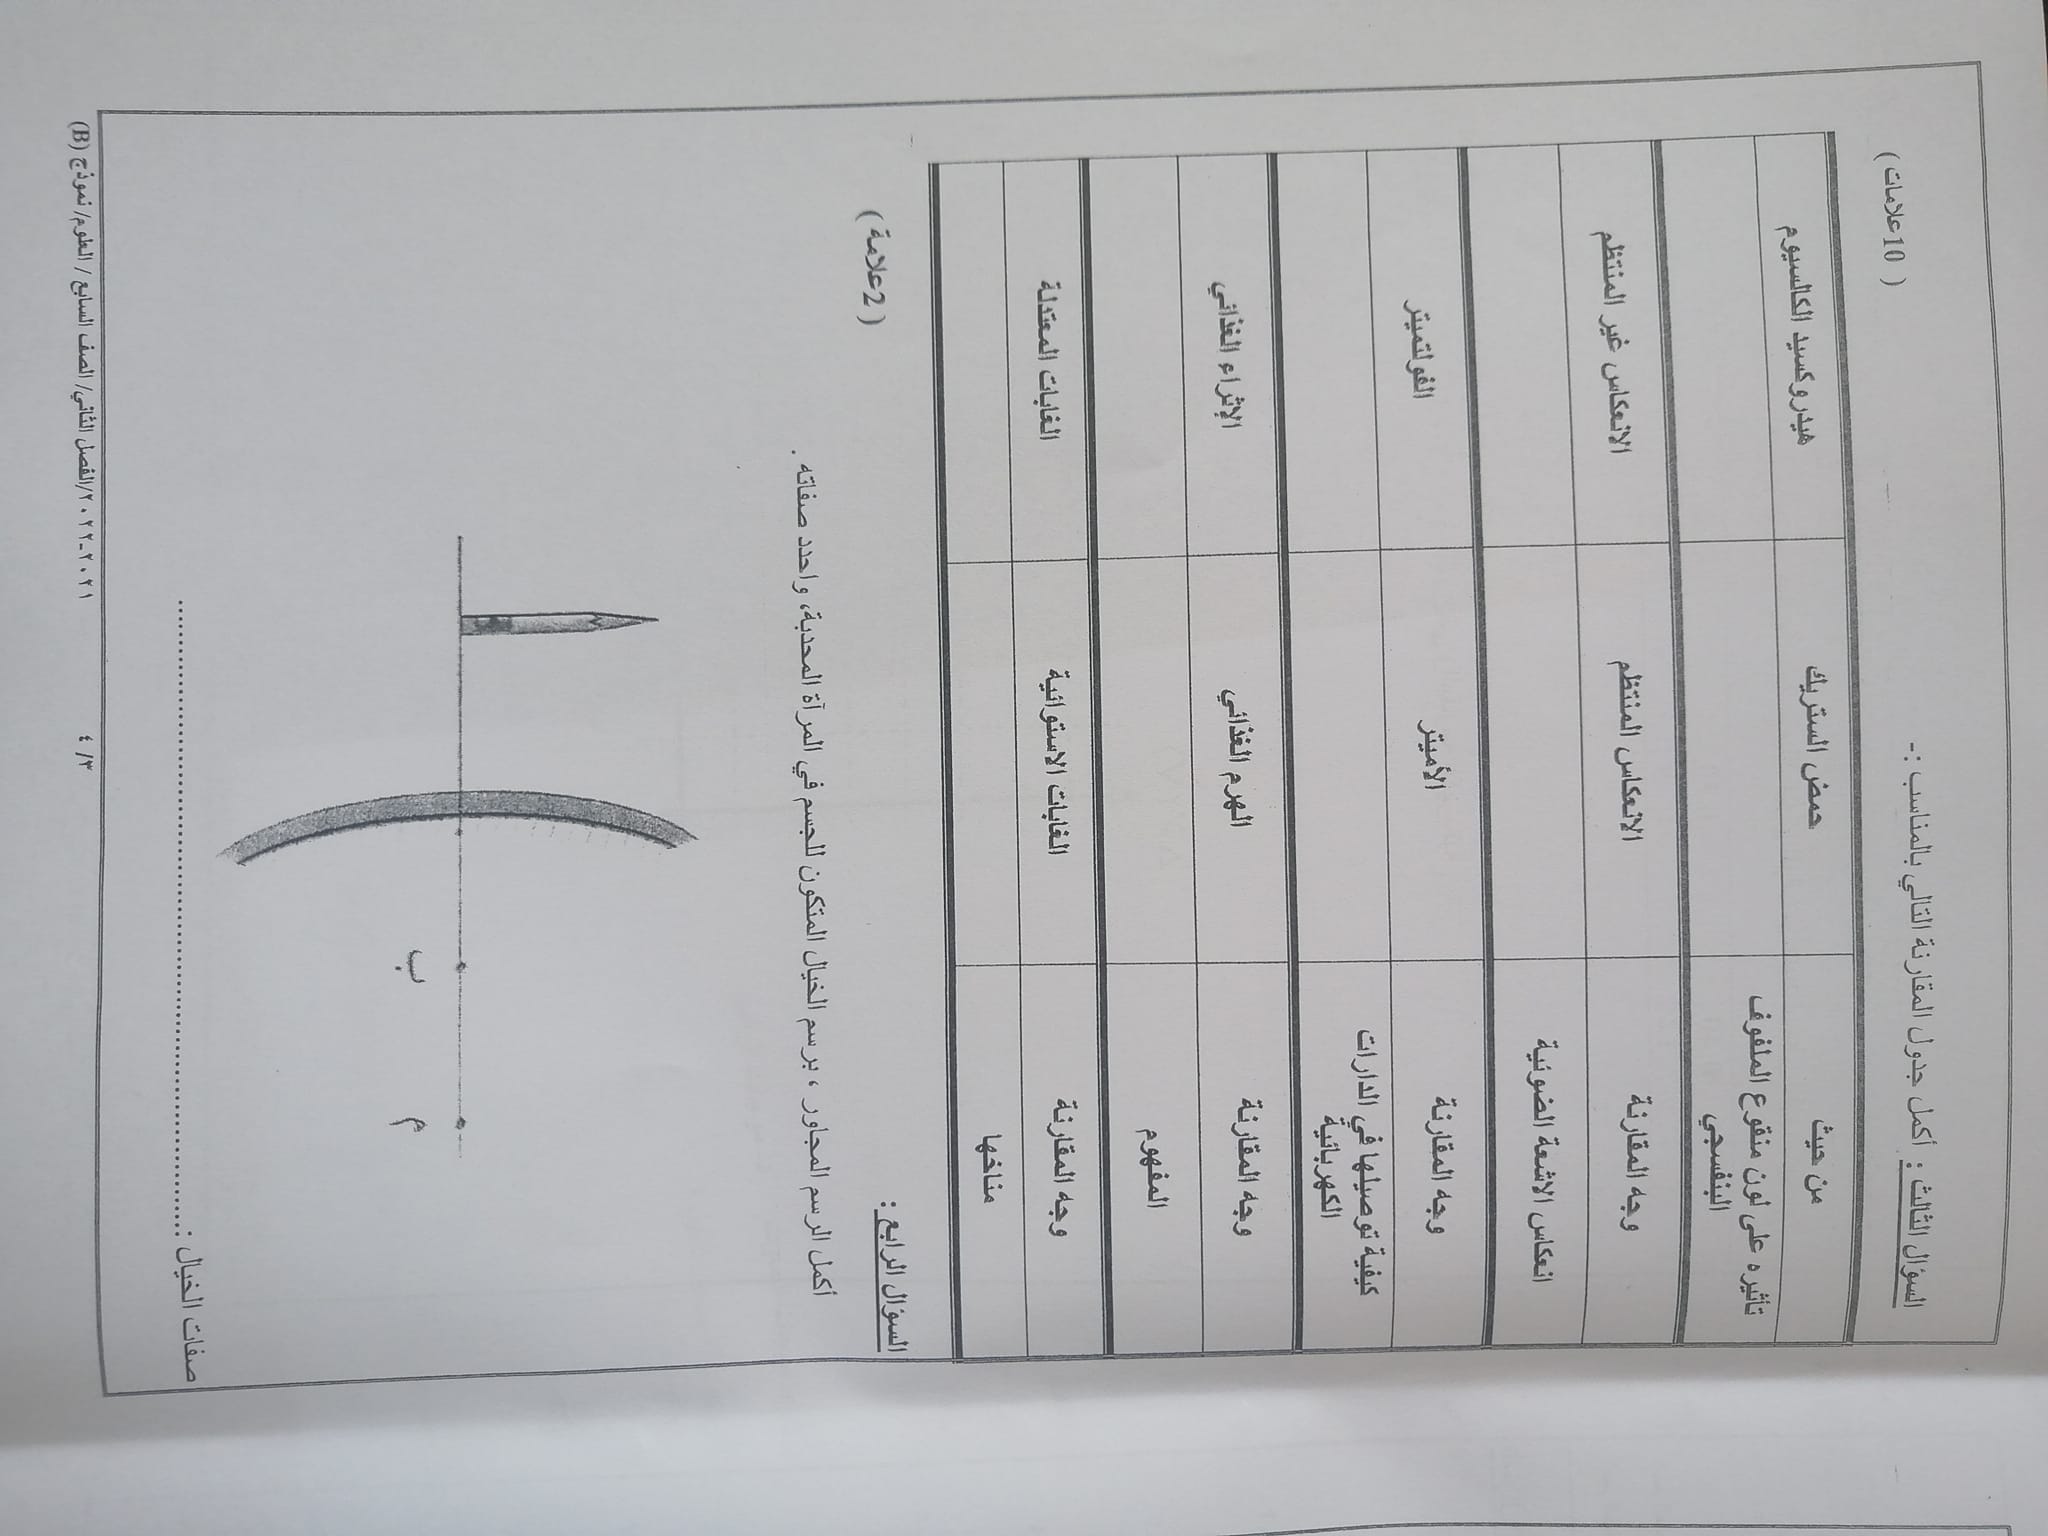 السؤال الثالث : أكمل جدول المقارنة التالي بالمناسب :-
( 10علامات )
من حيث حمض الستريك هيدروكسيد الكالسيوم
تأثيره على لون منقوع الملفوف
البنفسجي
وجه المقارنة الانعكاس المنتظم الانعكاس غير المنتظم
انعكاس الاشعة الضوئية
وجه المقارنة الأميتر الفولتميتر
كيفية توصيلها في الدارات
الكهربائية
وجه المقارنة الهرم الغذائي الإثراء الغذائي
المفهوم
وجه المقارنة الغابات الاستوائية الغابات المعتدلة
مناخها
السؤال الرابع :
( 2علامة )
أكمل الرسم المجاور ، برسم الخيال المتكون للجسم في المرآة المحدبة، واحدد صفاته .
ب
م
صفات الخيال : ........................................................................
٣/ ٤
٢٠٢١-٢٠٢٢/الفصل الثاني/ الصف السابع / العلوم/ نموذج (B)